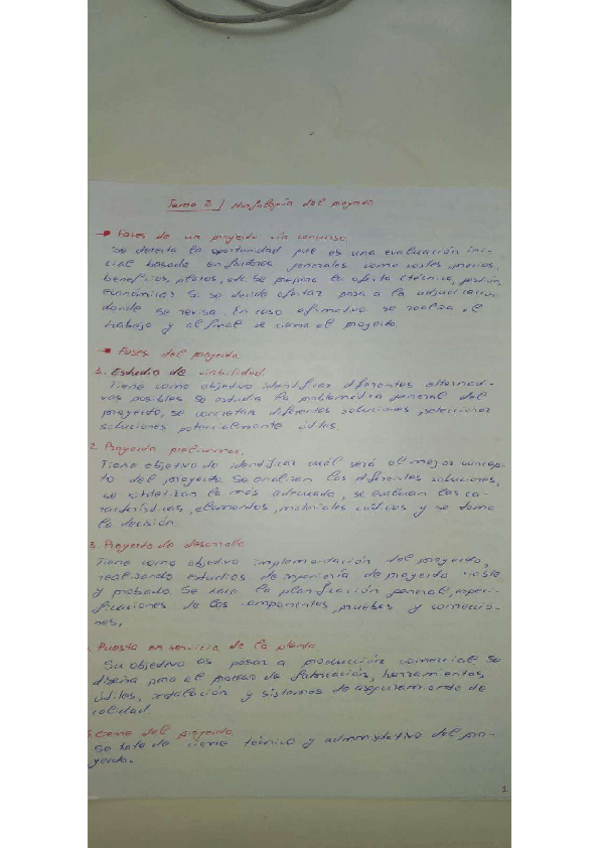 Tema 2 / Morfología del proyecto
→ Fases de un proyecto vía concurso.
Se detecta la oportunidad que es una evaluación ini-
cial basada en factores generales como costes, precios,
beneficios, plazos, etc. Se prepara la oferta (técnica, gestión,
económica). Si se decide ofertar pasa a la adjudicación
donde se revisa. En caso afirmativo se realiza el
trabajo y al final se cierra el proyecto.
→ Fases del proyecto
1. Estudio de viabilidad.
Tiene como objetivo identificar diferentes alternati-
vas posibles. Se estudia la problemática general del
proyecto, se concretan diferentes soluciones, seleccionar
soluciones potencialmente útiles.
2. Proyecto preliminar.
Tiene objetivo de identificar cuál será el mejor concep-
to del proyecto. Se analizan las diferentes soluciones,
se sintetizan la más adecuada, se evaluan las ca-
racterísticas, elementos, materiales críticos y se toma
la decisión.
3. Proyecto de desarrollo
Tiene como objetivo implementación del proyecto,
realizando estudios de ingeniería de proyecto
y probado. Se hace la planificación general, especi-
ficaciones de los componentes, pruebas y correccio-
nes.
Puesta en servicio de la planta
Su objetivo es pasar a producción comercial. Se
diseña para el proceso de fabricación, herramientas,
útiles, instalación y sistemas de aseguramiento de
calidad.
5. Cierre del proyecto
Se trata de cierre técnico y administrativo del pro-
yecto.
1